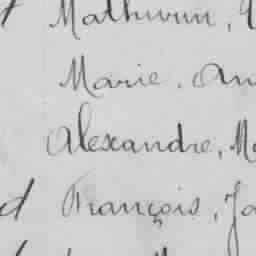 Mathurin,
Marie. An
Alexandre, M
d François, Ja